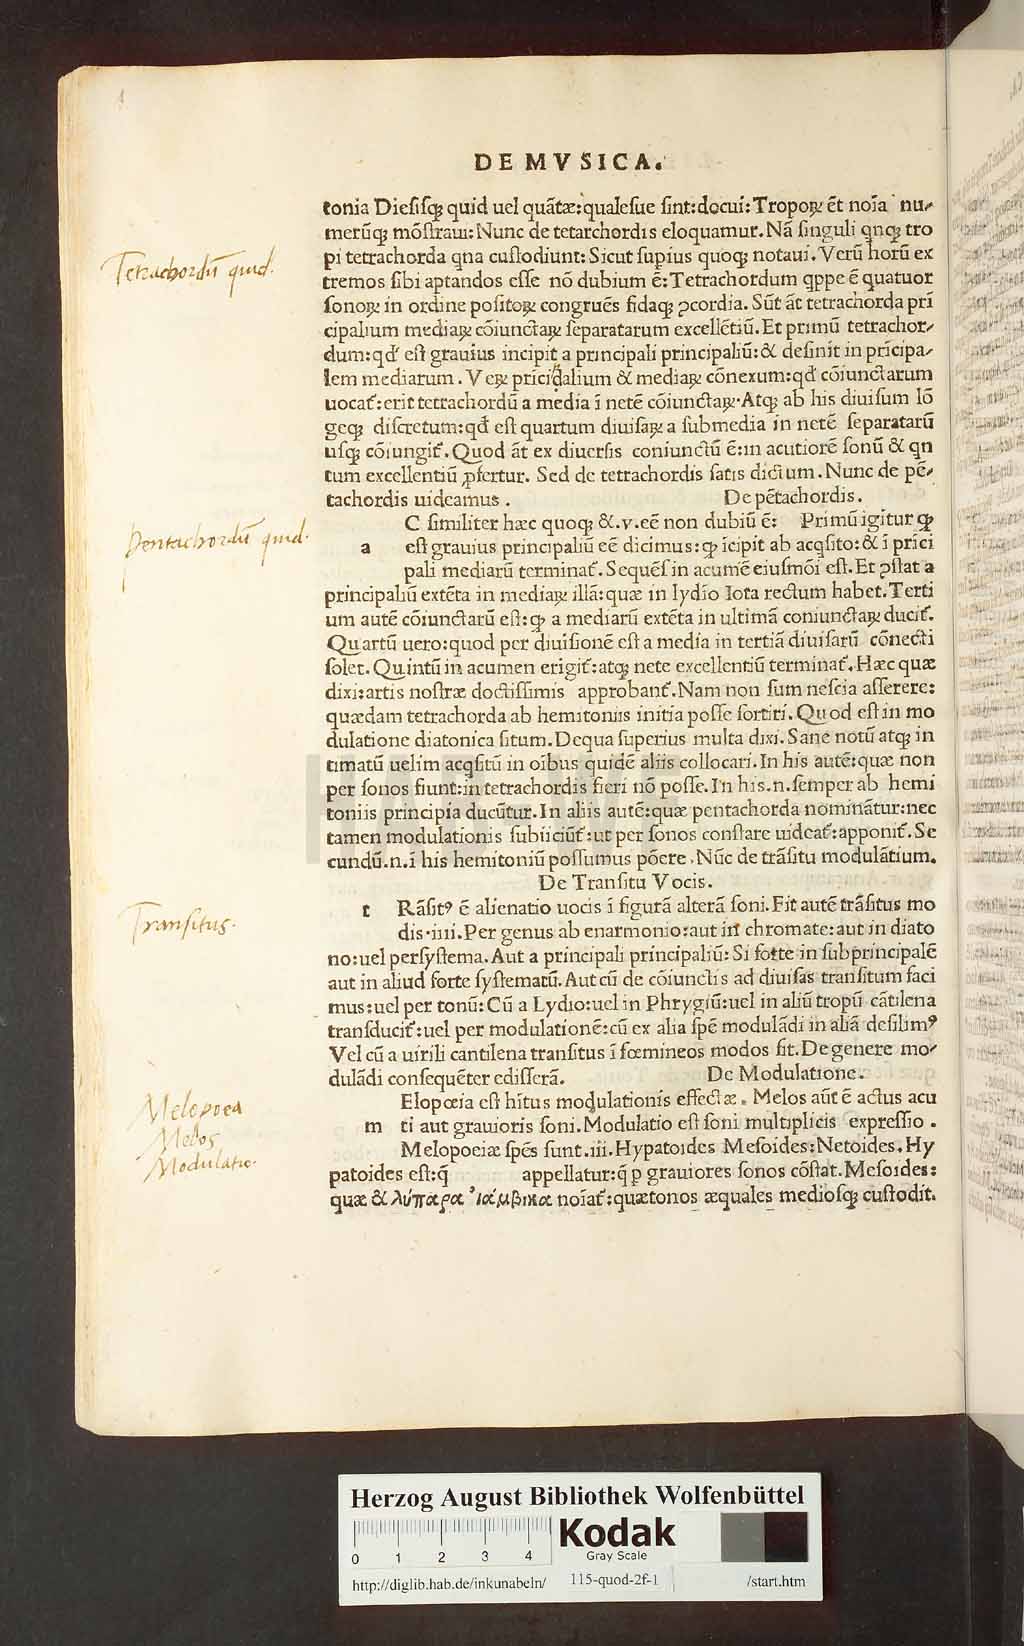 DE MVSICA.
tonia Diesisqꝫ quid uel quãtæ: qualesue sint: docui: Tropoꝝ ẽt noĩa nu-
merũqꝫ mõstraui: Nunc de tetarchordis eloquamur. Nã singuli qnqꝫ tro
pi tetrachorda qna custodiunt: Sicut supius quoqꝫ notaui. Verũ horũ ex
tremos sibi aptandos esse nõ dubium ẽ: Tetrachordum qppe ẽ quatuor
sonoꝝ in ordine positoꝝ congruẽs fidaqꝫ ꝯcordia. Sũt ãt tetrachorda prĩ
cipalium mediaꝝ cõiunctaꝝ separatarum excellẽtiũ. Et primũ tetrachor-
dum: qd' est grauius incipit a principali principaliũ: & desinit in prĩcipa-
lem mediarum. Veꝝ pricipalium & mediaꝝ cõnexum: qd' cõiunctarum
uocat̃: erit tetrachordũ a media ĩ netẽ cõiunctaꝝ. Atqꝫ ab his diuisum lõ
geqꝫ discretum: qd' est quartum diuisaꝝ a submedia in netẽ separatarũ
usqꝫ cõiungit̃. Quod ãt ex diuersis coniunctũ ẽ: in acutiorẽ sonũ & qn
tum excellentiũ ꝓfertur. Sed de tetrachordis satis dictum. Nunc de pẽ-
tachordis uideamus. De pẽtachordis.
C similiter hæc quoqꝫ &.v.eẽ non dubiũ ẽ: Primũ igitur qꝫ
a est grauius principaliũ eẽ dicimus: qꝫ ĩcipit ab acqsito: & ĩ prĩci
pali mediarũ terminat̃. Sequẽs in acumẽ eiusmõi est. Et ꝯstat a
principaliũ extẽta in mediaꝝ illã: quæ in lydio Iota rectum habet. Terti
um autẽ cõiunctarũ est: qꝫ a mediarũ extẽta in ultimã coniunctaꝝ ducit̃.
Quartũ uero: quod per diuisionẽ est a media in tertiã diuisarũ cõnecti
solet. Quintũ in acumen erigit̃: atqꝫ nete excellentiũ terminat̃. Hæc quæ
dixi: artis nostræ doctissimis approbant̃. Nam non sum nescia asserere:
quædam tetrachorda ab hemitoniis initia posse sortiri. Quod est in mo
dulatione diatonica situm. Dequa superius multa dixi. Sane notũ atqꝫ in
timatũ uelim acqsitũ in oĩbus quidẽ aliis collocari. In his autẽ: quæ non
per sonos fiunt: in tetrachordis fieri nõ posse. In his.n. semper ab hemi
toniis principia ducũtur. In aliis autẽ: quæ pentachorda nominãtur: nec
tamen modulationis subiiciũt̃: ut per sonos constare uideat̃: apponit̃. Se
cundũ.n. ĩ his hemitoniũ possumus põere. Nũc de trãsitu modulãtium.
De Transitu Vocis.
t Rãsitꝰ ẽ alienatio uocis ĩ figurã alterã soni. Fit autẽ trãsitus mo
dis.iiii. Per genus ab enarmonio: aut in chromate: aut in diato
no: uel persystema. Aut a principali principaliũ: Si forte in subprincipalẽ
aut in aliud forte systematũ. Aut cũ de cõiunctis ad diuisas transitum faci
mus: uel per tonũ: Cũ a Lydio: uel in Phrygiũ: uel in aliũ tropũ cãtilena
transducit̃: uel per modulationẽ: cũ ex alia spẽ modulãdi in aliã desilimꝰ
Vel cũ a uirili cantilena transitus ĩ fœmineos modos fit. De genere mo-
dulãdi consequẽter edisserã. De Modulatione.
Elopœia est hĩtus modulationis effectæ. Melos aũt ẽ actus acu
m ti aut grauioris soni. Modulatio est soni multiplicis expressio.
Melopoeiæ spẽs sunt.iii. Hypatoides Mesoides: Netoides. Hy
patoides est: q̃ appellatur: q̃ ꝑ grauiores sonos cõstat. Mesoides:
quæ & λύπαρα ἰάμβικα noĩat̃: quætonos æquales mediosqꝫ custodit.
Tetrachordũ quid.
Pentachordũ quid.
Transitus.
Melopoea
Melos
Modulatio.
HAB-WF
Herzog August Bibliothek Wolfenbüttel
0 1 2 3 4
Kodak
Gray Scale
http://diglib.hab.de/inkunabeln/ 115-quod-2f-1 /start.htm